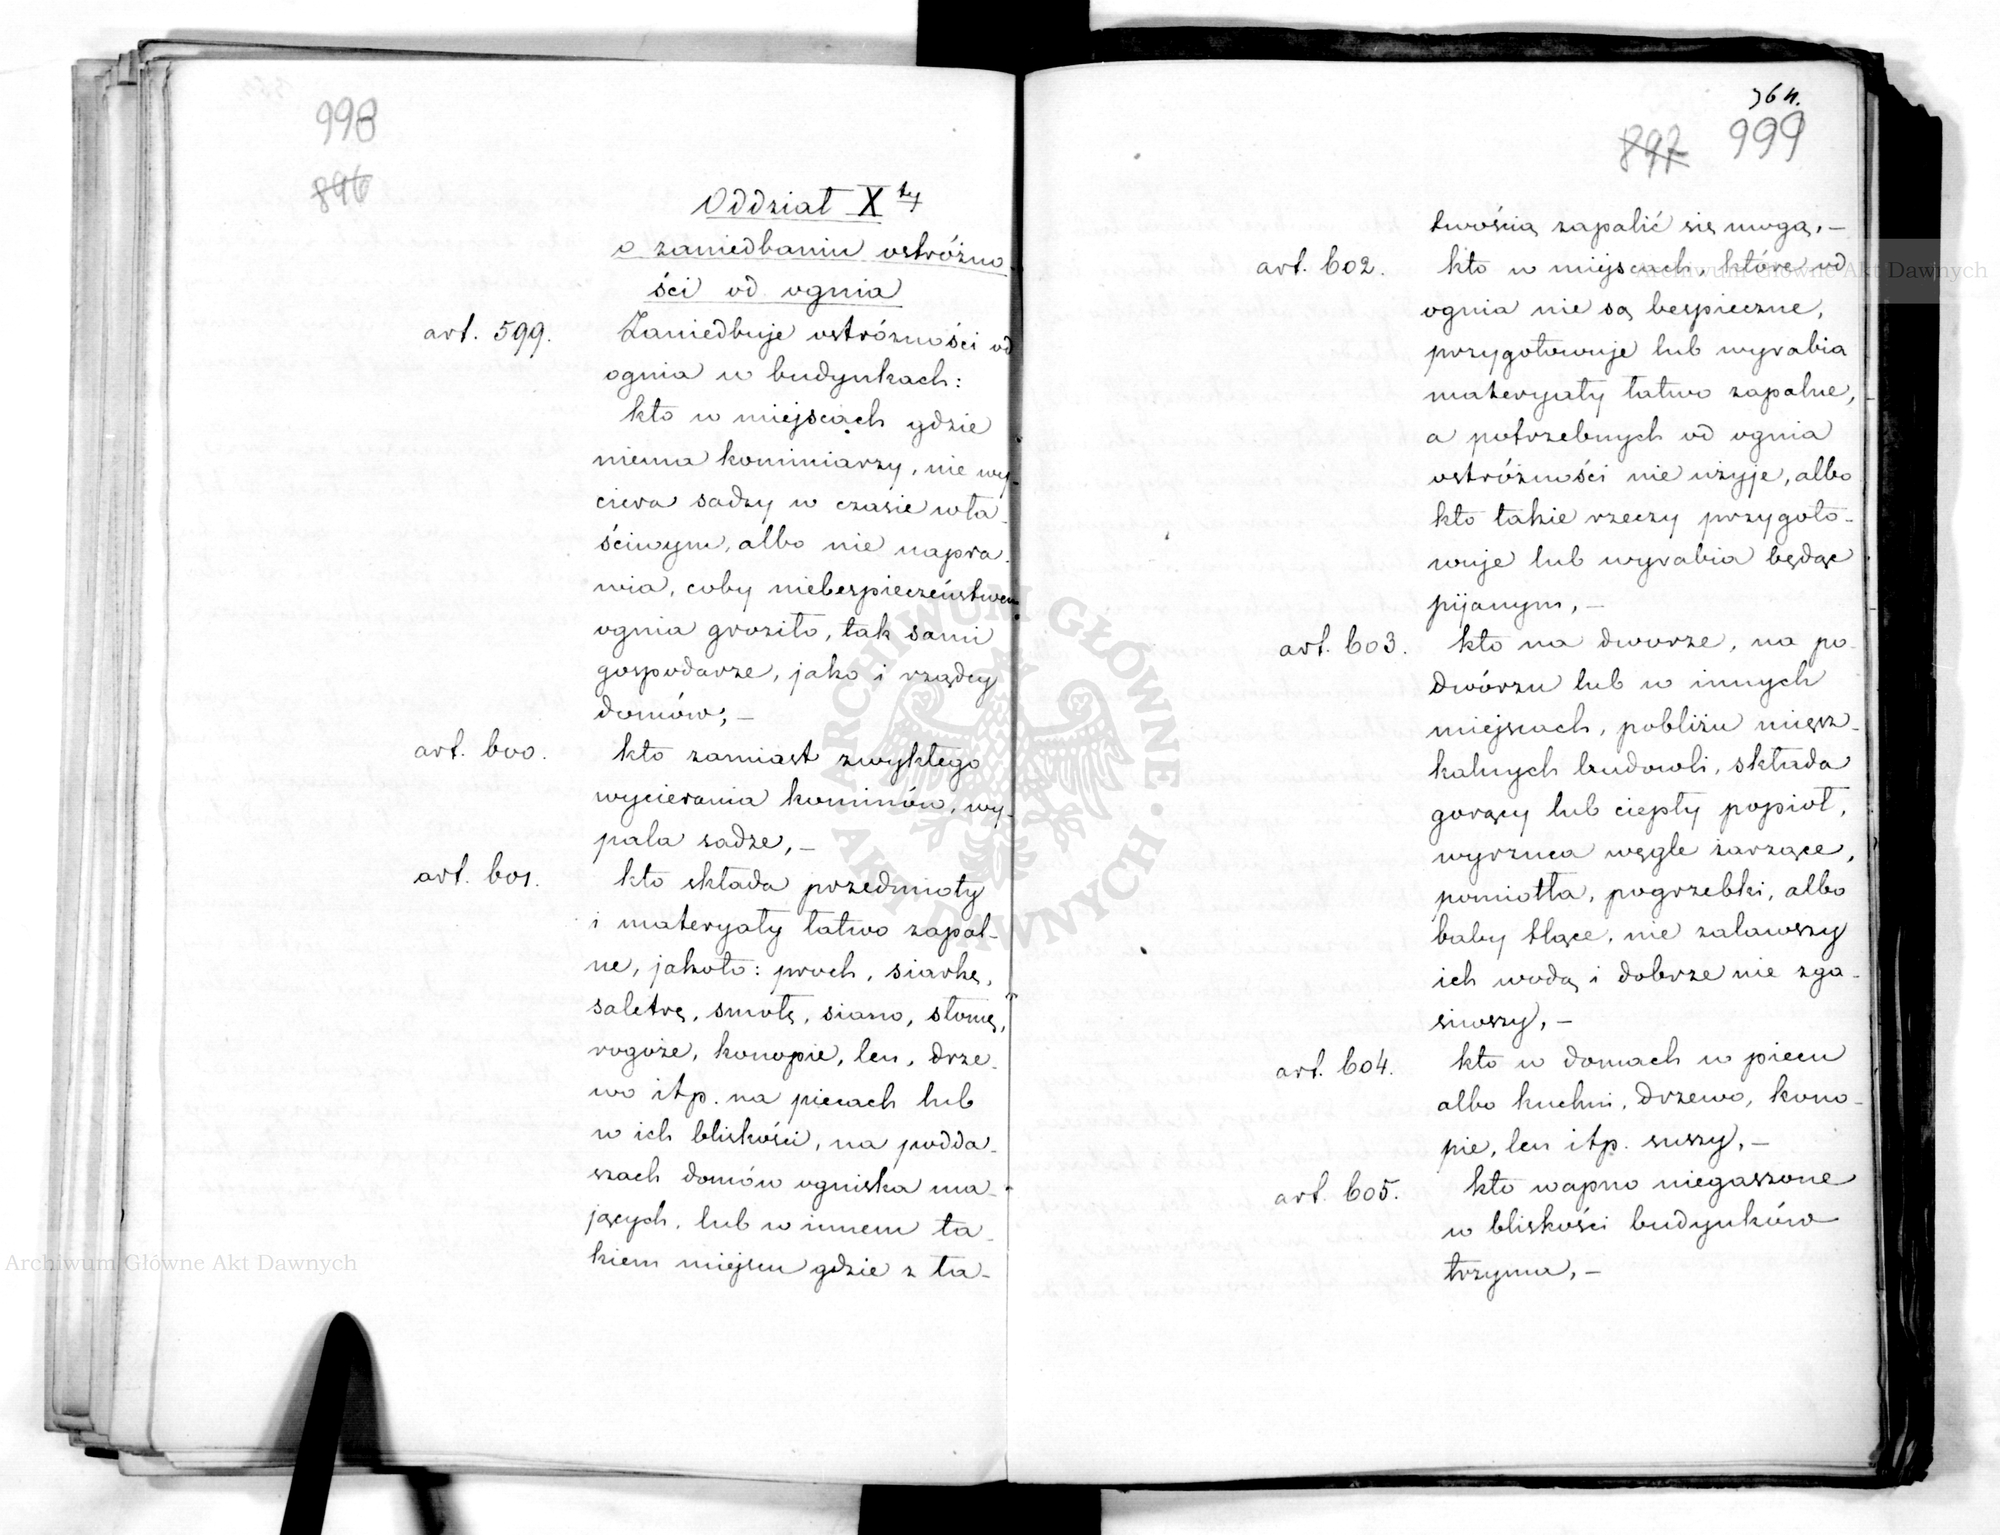 998
896
Oddział X ty
o zaniedbaniu ostróżno
ści od ognia
art. 599.
Zaniedbuje ostróżności od
ognia w budynkach:
kto w miejscach gdzie
niema kominiarzy, nie wy-
ciera sadzy w czasie wła-
ściwym, albo nie napra-
wia, coby niebezpieczeństwem
ognia groziło, tak sami
gospodarze, jako i rządcy
domów; –
art. 600.
kto zamiast zwykłego
wycierania kominów, wy-
pala sadze, –
art. 601.
kto składa przedmioty
i materyały łatwo zapal-
ne, jakoto: proch, siarkę,
saletrę, smołę, siano, słomę,
rogoże, konopie, len, drze-
wo itp. na piecach lub
w ich bliskości, na podda-
szach domów ogniska ma-
jących, lub w innem ta-
kiem miejscu gdzie z ła-
999
897
twością zapalić się mogą, –
art. 602.
kto w miejscach, które od
ognia nie są bespieczne,
przygotowuje lub wyrabia
materyały łatwo zapalne,
a potrzebnych od ognia
ostróżności nie użyje, albo
kto takie rzeczy przygoto-
wuje lub wyrabia będąc
pijanym, –
art. 603.
kto na dworze, na po-
dwórzu lub w innych
miejscach, pobliżu miesz-
kalnych budowli, składa
gorący lub ciepły popiół,
wyrzuca węgle żarzące,
pomiotła, pogrzebki, albo
baby tlące, nie zalawszy
ich wodą i dobrze nie zga-
siwszy, –
art. 604.
kto w domach w piecu
albo kuchni, drzewo, kono-
pie, len itp. suszy, –
art. 605.
kto wapno niegaszone
w bliskości budynków
trzyma, –
ARCHIWUM GŁÓWNE · AKT DAWNYCH ·
Archiwum Główne Akt Dawnych
Archiwum Główne Akt Dawnych